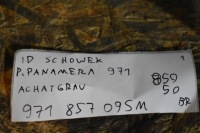 ID SCHOWEK 1
P. PANAMERA 971 859
ACHATGRAU 50
971 857 095M BR